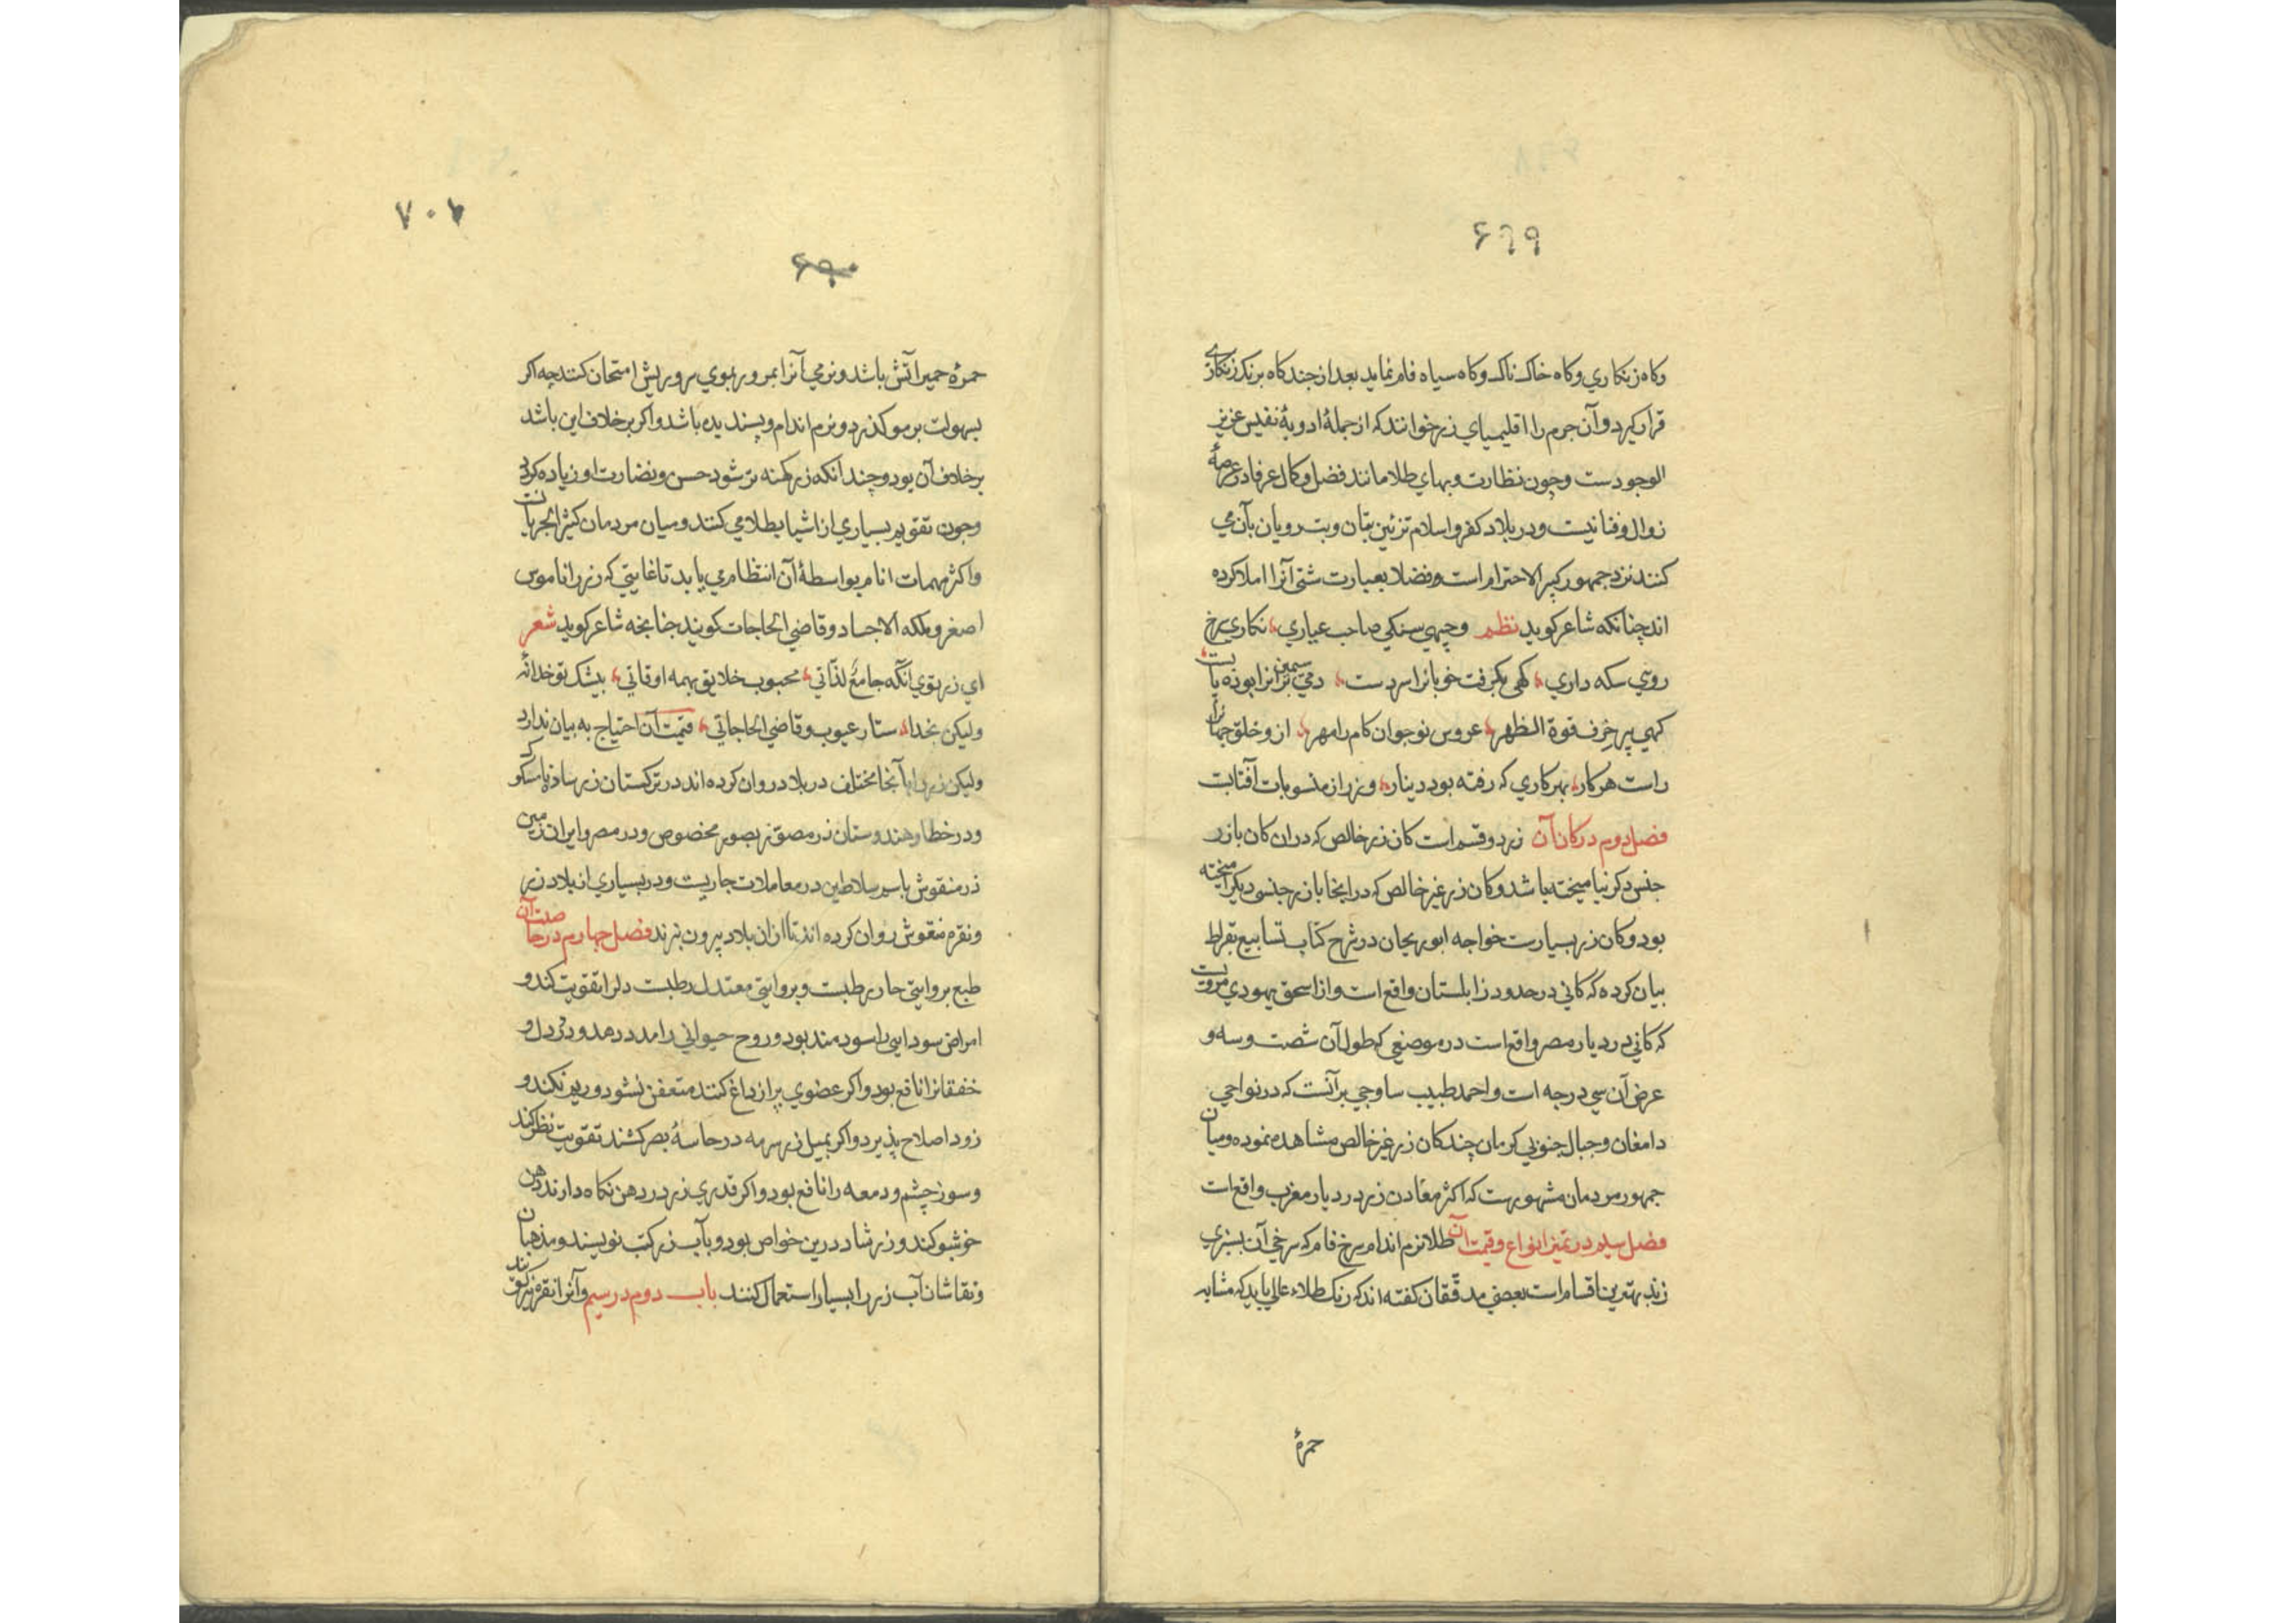 ۶۹۹
وکاه زنکاري وکاه خاک ناک وکاه سیاه فام نماید بعد از چند کاه برنک زنکاری
قرار کیرد وآن جرم را اقلیمیاي زر خوانند که از جملۀ ادویۀ نفیس عزیز
الوجودست وچون نظارت وبهاي طلا مانند فضل وکمال عرفا در عرصۀ
زوال وفنا نیست ودر بلاد کفر واسلام تزئین بتان وبت رویان بآن مي
کنند نزد جمهور کبیر الاحترام است وفضلا بعبارت شتی آنرا املا کرده
اند چنانکه شاعر کوید نظم وجیهي سنکي صاحب عیاري نکاري سرخ
روي سکه داري کهی بکرفت خوبانرا سر دست دمی سیمین برانرا بوده پا بست
کهي پیر خرف قوة الظهر عروس نوجوان کام را مهر ازو خلق جهانرا
راست هر کار بهر کاري که رفته بود دینار وزر از منسوبات آفتابست
فصل دوم در کان آن زر دو قسم است کان زر خالص که دران کان با زر
جنس دکر نیامیخته باشد وکان زر غیر خالص که در اینجا با زر جنسی دیکر آمیخته
بود وکان زر بسیارست خواجه ابوریحان در شرح کتاب تسابیع بقراط
بیان کرده که کاني در حدود زابلستان واقع است واز اسحق یهودي مرویست
که کاني در دیار مصر واقع است در موضعي که طول آن شصت وسه و
عرض آن سي درجه است واحمد طبیب ساوجي برآنست که در نواحي
دامغان وجبال جنوبي کرمان چند کان زر غیر خالص مشاهده نموده ومیان
جمهور مردمان مشهورست که اکثر معادن زر در دیار مغرب واقع است
فصل سیم در تمیز انواع وقیمت آن طلا نرم اندام سرخ فام که سرخي آن بسبزي
زند بهترین اقسام است بعضي مدققان کفته اند که رنک طلاء عالي باید که مشابه
حمرۀ
۷۰۲
۶۹۰
حمرۀ حمیر آتش باشد ونرمي آنرا بمرور بموي سر وریش امتحان کنند چه اکر
بسهولت بر مو کذرد ونرم اندام وپسندیده باشد واکر بر خلاف این باشد
بر خلاف آن بود وچندانکه زر کهنه تر شود حسن ونضارت او زیاده کردد
وچون تقویم بسیاري از اشیا بطلا مي کنند ومیان مردمان کثیر الجریانست
واکثر مهمات انام بواسطۀ آن انتظام مي یابد تا غایتي که زر را ناموس
اصغر وملکه الاجساد وقاضي الحاجات کویند چنانچه شاعر کوید شعر
اي زر توي آنکه جامع لذاتي محبوب خلایق بهمه اوقاتي بیشک تو خدا نه
ولیکن بخدا ستار عیوب وقاضي الحاجاتي قیمت آن احتیاج به بیان ندارد
ولیکن زر را بآنحا مختلف در بلاد روان کرده اند در ترکستان زر ساده نامسکوک
ودر خطا وهندوستان زر مصور بصور مخصوص ودر مصر وایران زمین
زر منقوش باسم سلاطین در معاملات جاریست ودر بسیاري از بلاد زر
ونقره منقوش روان کرده اند تا ازان بلاد بیرون نبرند فصل چهارم در خاصیت آن
طبع بروایتي حار رطبست وبروایتي معتدل رطبست دلرا تقویت کند و
امراض سودایي را سودمند بود وروح حیواني را مدد دهد ودرد دل و
خفقانرا نافع بود واکر عضوي بزر داغ کنند متعفن نشود وریم نکند و
زود اصلاح پذیرد واکر بمیل زر سرمه در حاسۀ بصر کشند تقویت نظر کند
وسوزچشم ودمعه را نافع بود واکر قدري زر در دهن نکاه دارند دهن
خوشبو کند وزر شاد درین خواص بود وبآب زر کتب نویسند ومذهبان
ونقاشان آب زر را بسیار استعمال کنند باب دوم در سیم وآنرا نقره نیز کویند